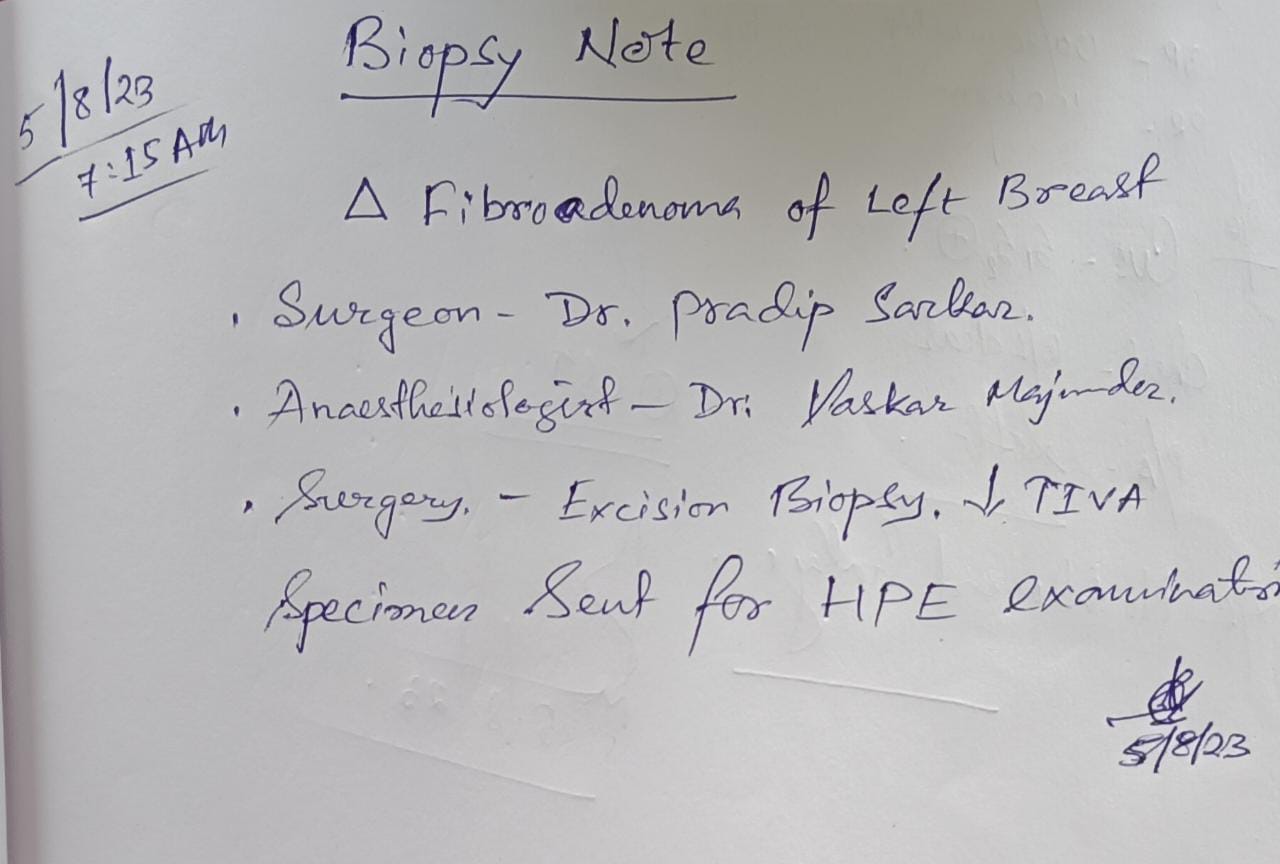 Biopsy Note
5/8/23
7:15 AM
Δ Fibroadenoma of Left Breast
. Surgeon - Dr. Pradip Sarkar.
. Anaesthesiologist - Dr. Vaskar Majumder.
. Surgery. - Excision Biopsy. ↓ TIVA
Specimen Sent for HPE examination
5/8/23